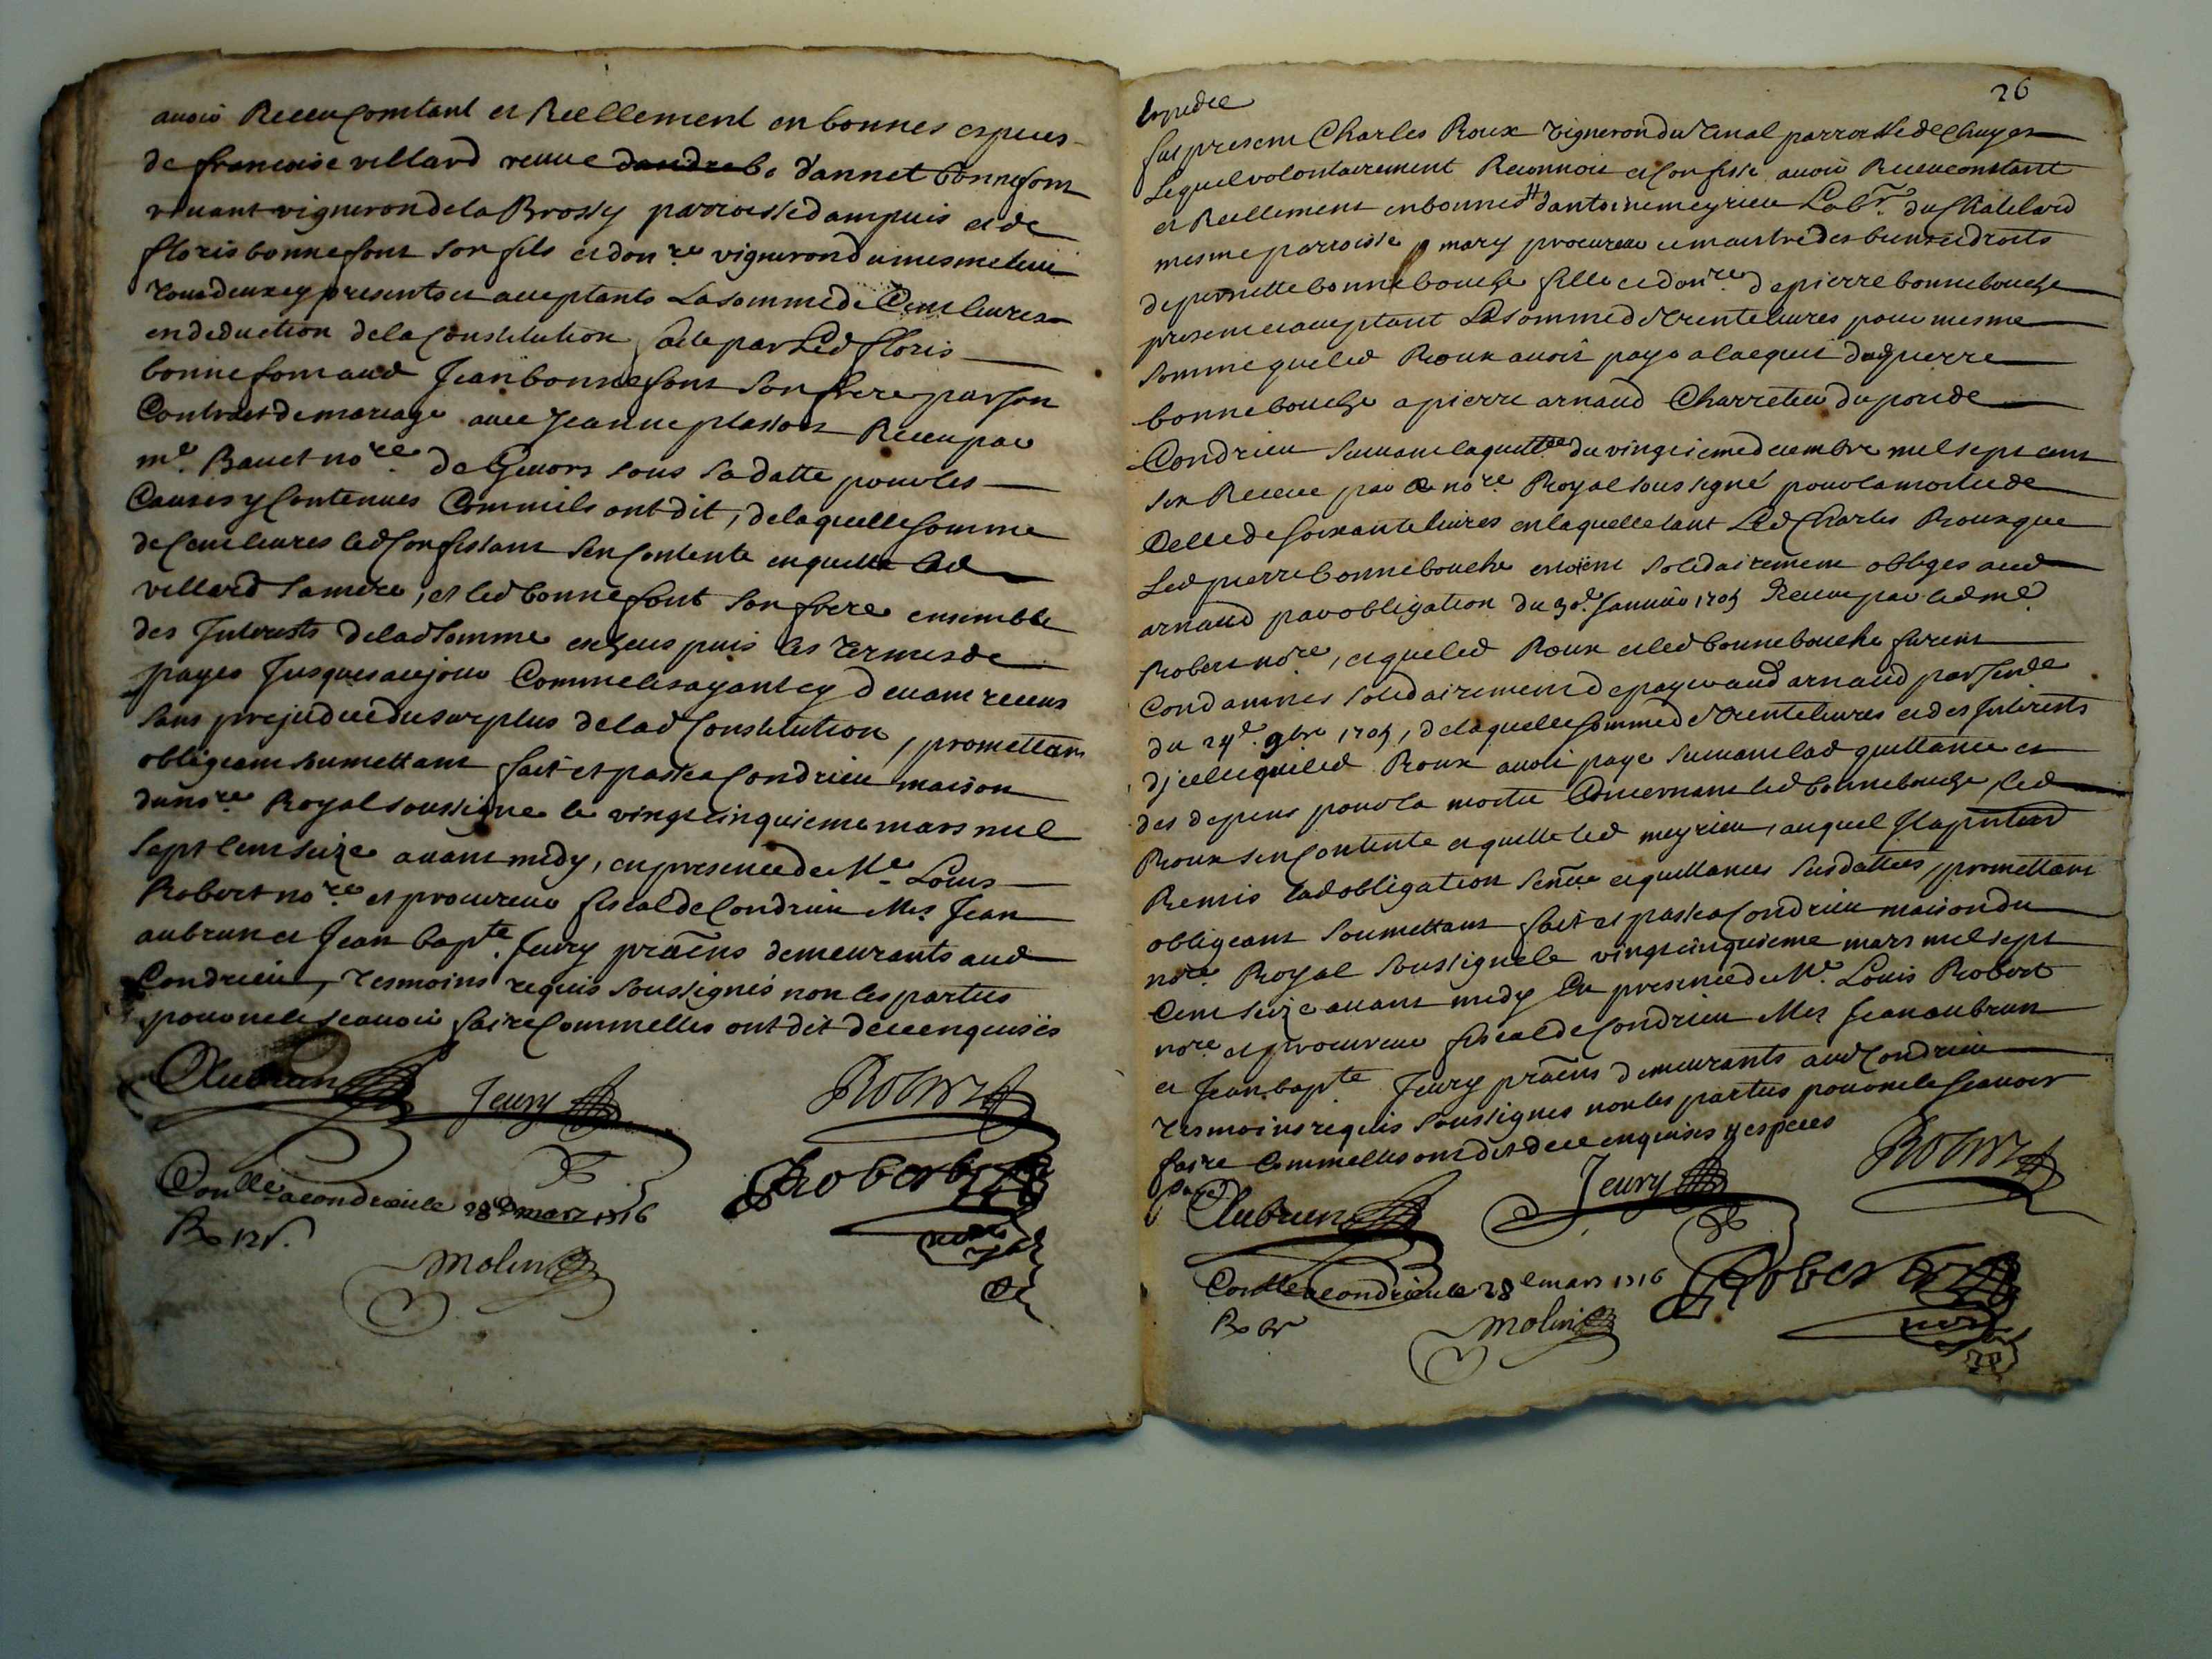 avoir Receu Comtant et Reellement en bonnes especes
de francoise villard veuve dandre bo dannet bonnefont
vivant vigneron de la Brossy parroisse dampuis et de
floris bonnefont son fils et donre vigneron du mesme lieu
tous deux cy presents et acceptants La somme de Cent livres
en deduction de la Constitution faite par Led floris
bonnefont aud Jean bonnefont Son frere par son
Contract de mariage avec Jeanne plasson Receu par
me. Bauet nore de Givors sous sa datte pour les
Causes y Contenues Comme ils ont dit, de laquelle somme
de Cent livres led Confessant sen Contente en quitte lad
villard sa mere, et led bonnefont son frere ensemble
des Interests de lad somme escheus puis les termes de
payes Jusques aujour Comme les ayant cy devant receus
sans prejudice du surplus de lad Constitution, promettant
obligeant soumettant fait et passé a Condrieu maison
du nore Royal soussigne le vingt cinquieme mars mil
sept Cent seize avant midy, en presence de Me Louis
Robert nore et procureur fiscal de Condrieu Mes Jean
aubrun et Jean bapte. Jeury praens demeurants aud
Condrieu, tesmoins requis soussignés non les parties
pour ne le scavoir faire Comme elles ont dit de ce enquises
Aubrun Jeury Robert
Conlle a condrieu le 28e mars 1716
Robert
R 12 s.
nore
Molin
26
expediee
fut present Charles Roux vigneron du Tenal parroisse de Chuyer
Lequel volontairement Reconnoit et Confesse avoir Receu contant
et Reellement en bonnes # dantoine meyrieu Labr. du Chatelard
mesme parroisse mary procureur et maistre des biens et droits
de pernette bonnebouche fille et donre de pierre bonnebouche
present et acceptant La somme de trente livres pour mesme
somme que led Roux avoit paye a lacquit dud pierre
bonnebouche a pierre arnaud Charretier du port de
Condrieu suivant la quittce du vingtieme decembre mil sept cent
six Receue par le nore Royal soussigné pour la moitié de
Celle de soixante livres en laquelle tant Led Charles Roux que
Led pierre bonnebouche estoient solidairement obliges aud
arnaud par obligation du 30e. Janvier 1705 Receue par led me
Robert nore, et que led Roux et led bonnebouche furent
Condamnes solidairement de payer aud arnaud par sence
du 24e. 9bre 1705, de laquelle somme de trente livres et des Interests
dicelle que led Roux avoit paye suivant lad quittance et
des depens pour la moitie Concernant led bonnebouche, led
Roux sen Contente et quitte led meyrieu, auquel Il a
Remis lad obligation sence et quittances susdattees, promettant
obligeant soumettant fait et passé a Condrieu maison du
nore Royal soussigné le vingt cinquieme mars mil sept
Cent seize avant midy En presence de Me. Louis Robert
nore et procureur fiscal de Condrieu Mes Jean aubrun
et Jean bapte Jeury praens demeurants aud Condrieu
tesmoins requis soussignes non les parties pour ne le scavoir
faire Comme elles ont dit de ce enquises # especes
Aubrun Jeury Robert
Conlle a condrieu le 28e mars 1716
Robert
R 6 s
nore
Molin